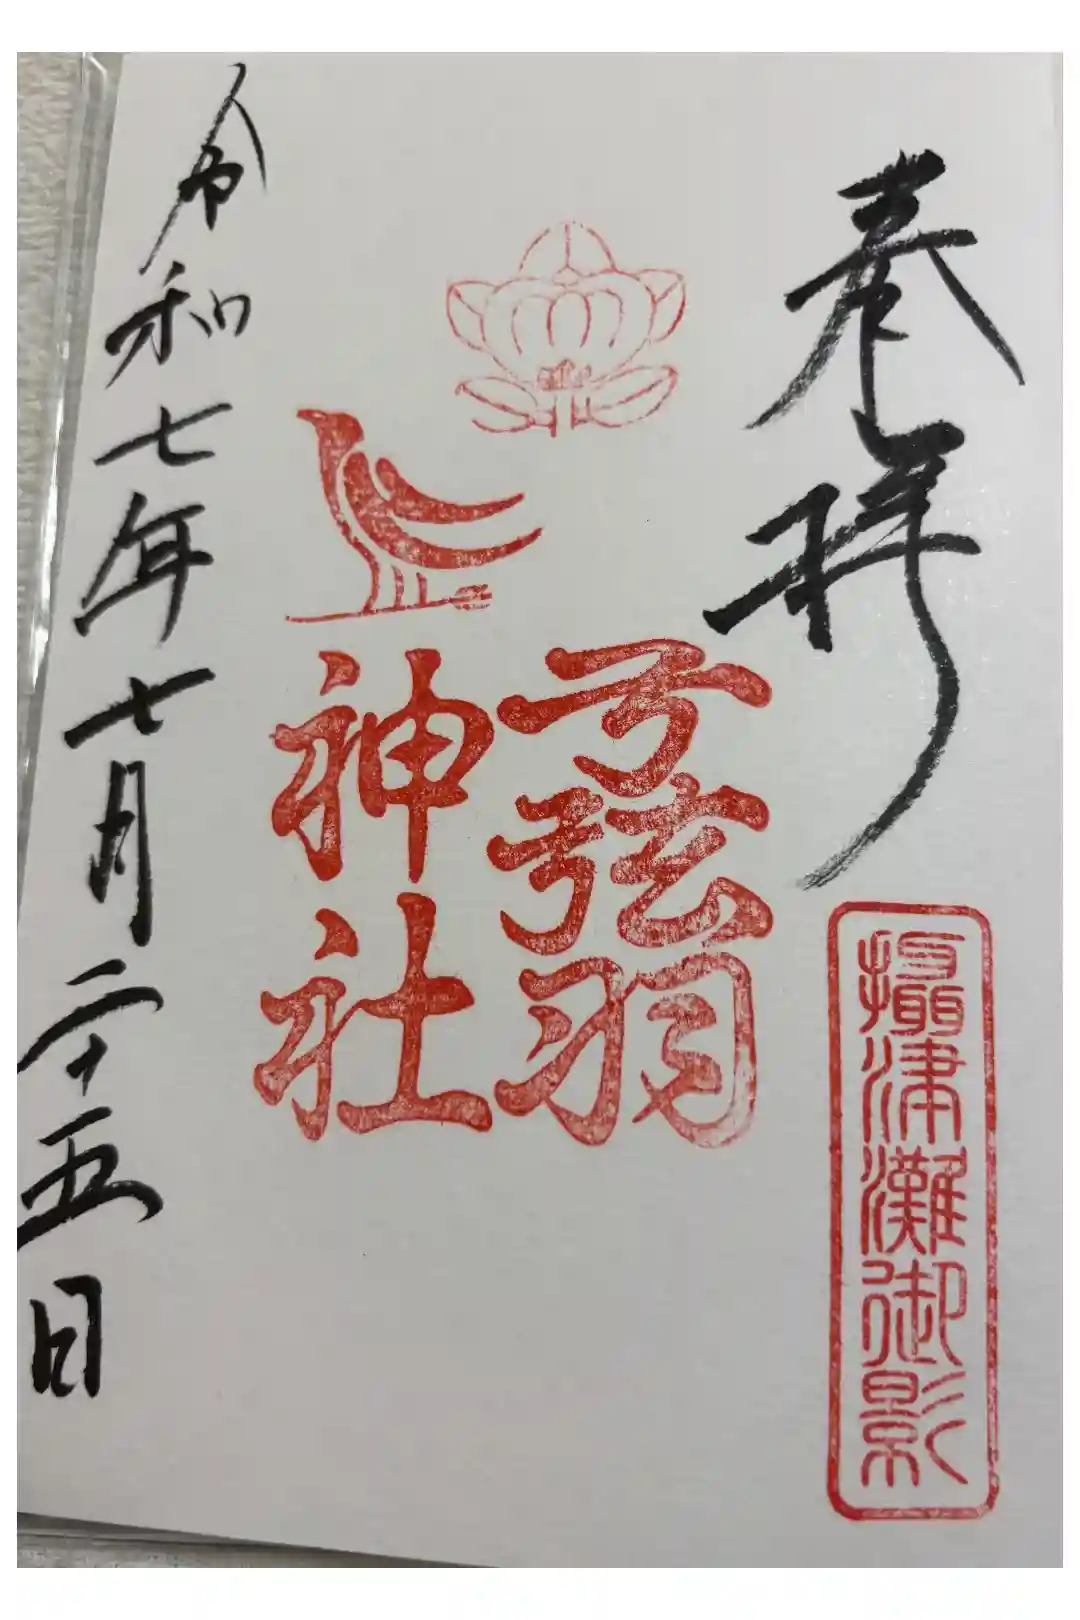 奉拝
摂津灘御影
弓弦羽
神社
令和七年七月二十五日